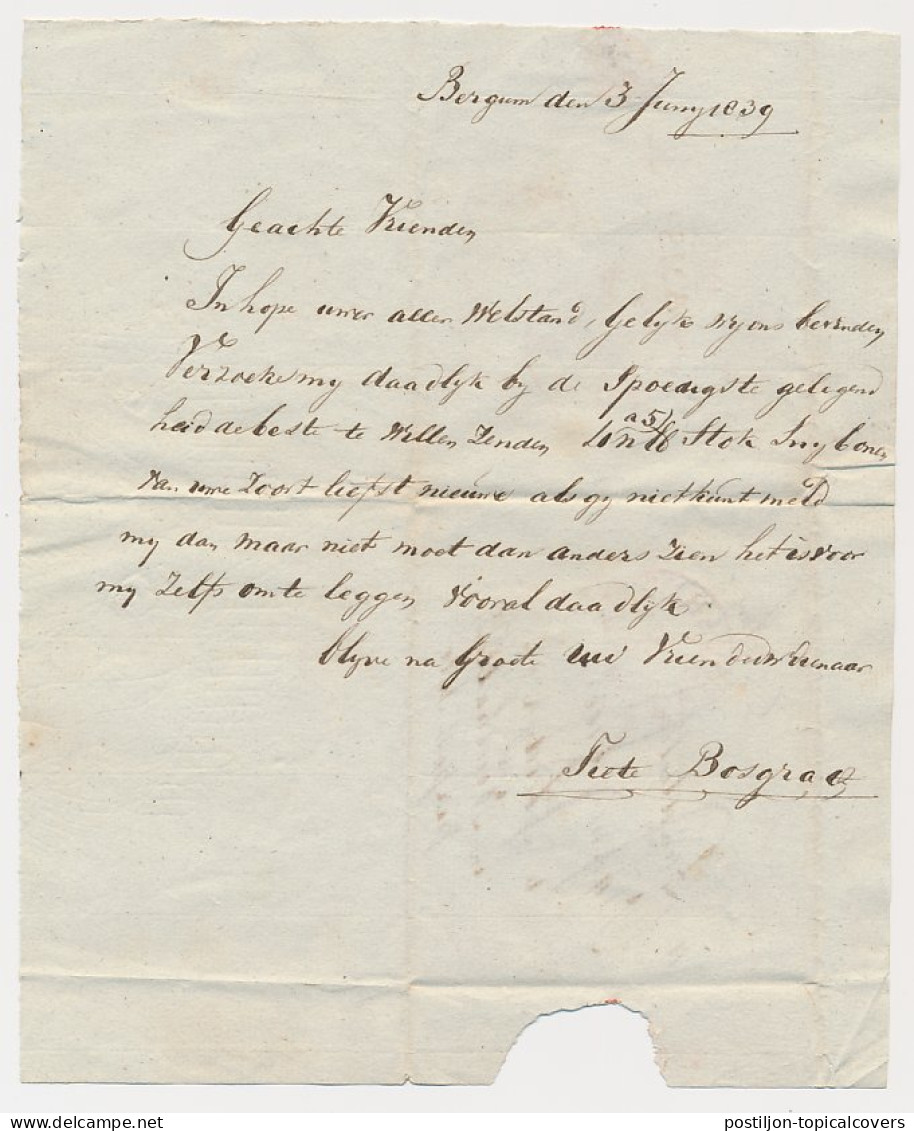 Bergum den 3 Juny 1839
Geachte Vrienden
In hope uwer aller Welstand, Gelyk wy ons bevinden
Verzoeke my daadlyk by de Spoedigste gelegend
heid de beste te Willen Zenden a 5 Stok Snybonen
van uwe Zoort liefst nieuwe als gy niet kunt meld
my dan maar niet moet dan anders Zien het is voor
my Zelfs om te leggen Vooral daadlyk
blyve na Groete uw Vriend
Tiete Bosgraaf
postiljon-topicalcovers